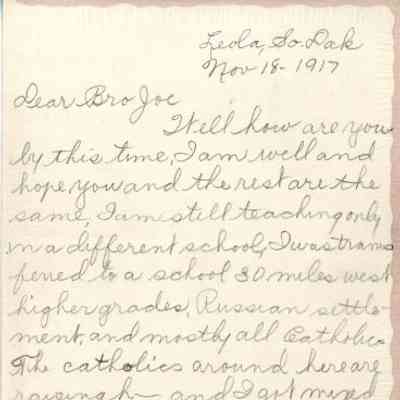 Leola, So. Dak
Nov 18 - 1917
Dear Bro Joe
Well how are you
by this time, I am well and
hope you and the rest are the
same, I am still teaching only
in a different school, I was trans
fered to a school 30 miles west
higher grades, Russian settle-
ment, and mostly all Catholics
The catholics around here are
raising h— and I got mixed